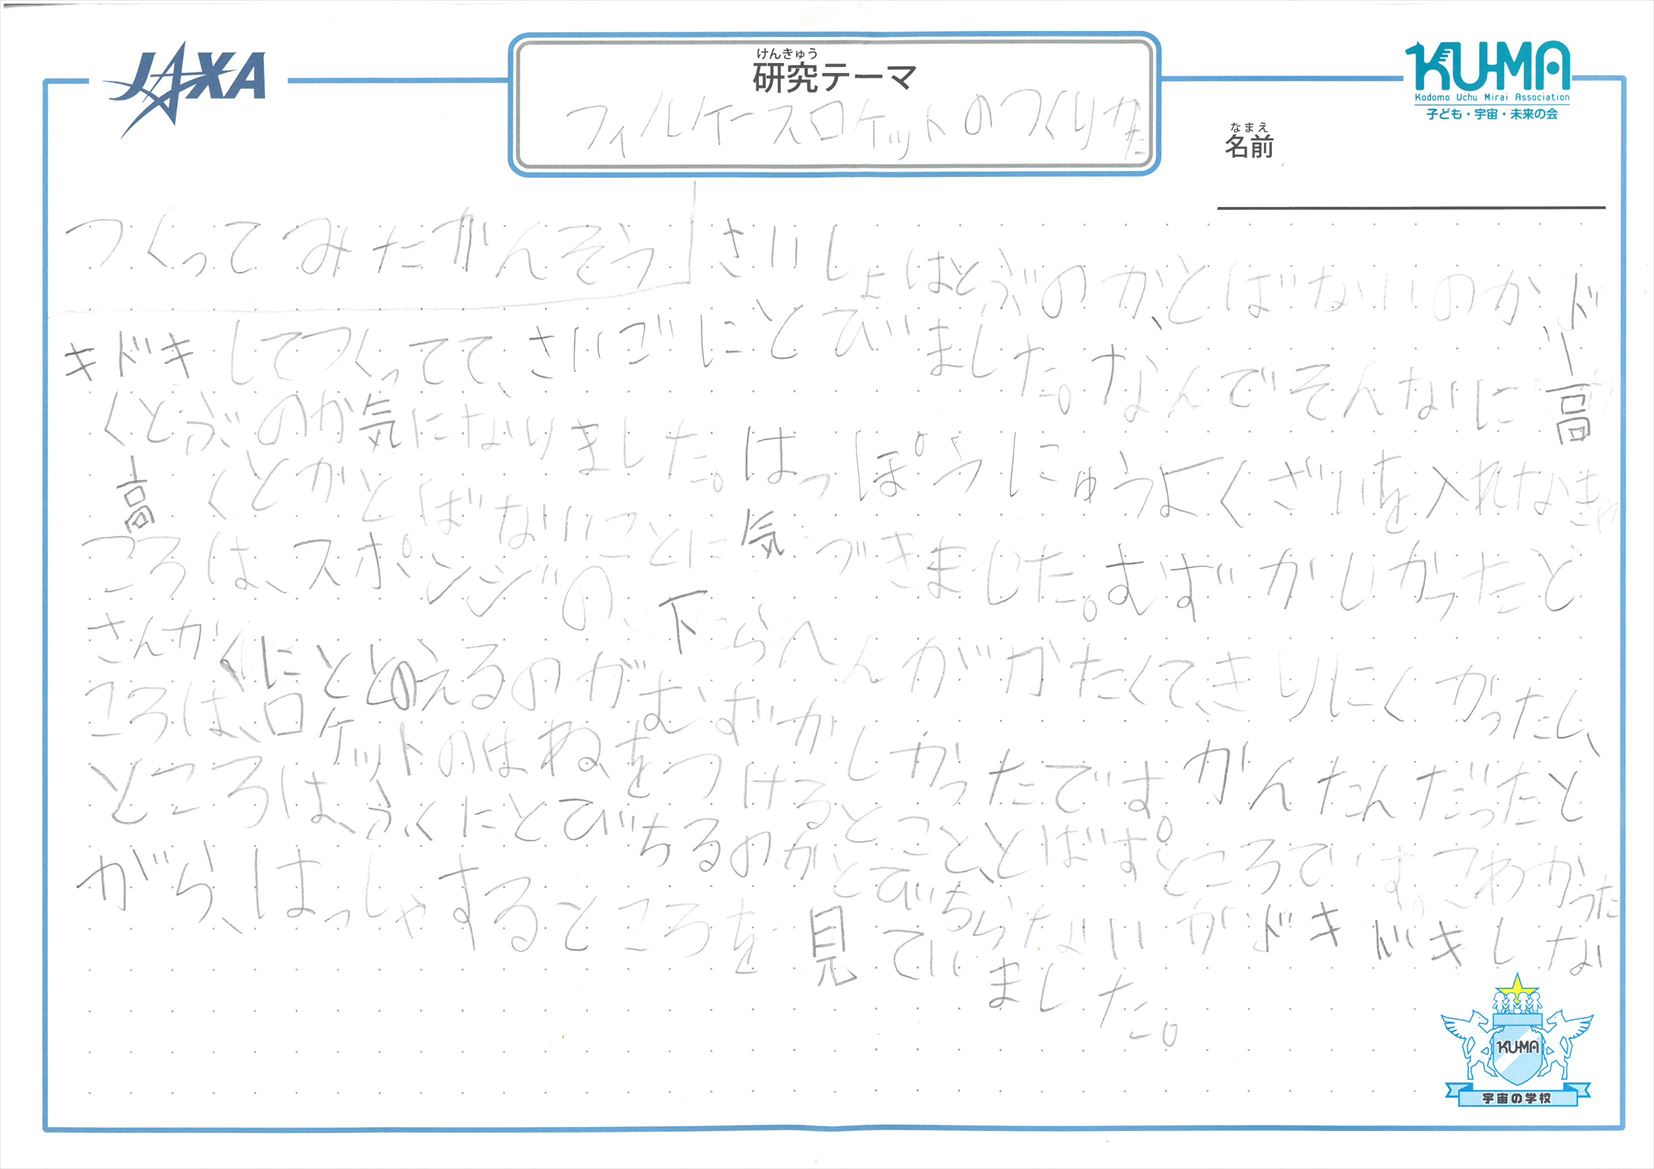 JAXA
けんきゅう
研究テーマ
フィルケースロケットのつくりかた
KUMA
Kodomo Uchu Mirai Association
子ども・宇宙・未来の会
なまえ
名前
つくってみたかんそう」さいしょはとぶのか、とばないのか、ド
キドキしてつくってて、さいごにとびました。なんでそんなに高
くとぶのか気になりました。はっぽうにゅうよくざいを入れなきゃ
高くとかとばないことに気づきました。むずかしかったと
ころは、スポンジの、下らへんがかたくて、きりにくかったし、
さんかくにととのえるのがむずかしかったです かんたんだったと
ころは、ロケットのはねをつけるとこと、とばすところです。こわかった
ところは、ふくにとびちるのかとびちらないがドキドキしな
がら、はっしゃするところを見ていました。
KUMA
宇宙の学校